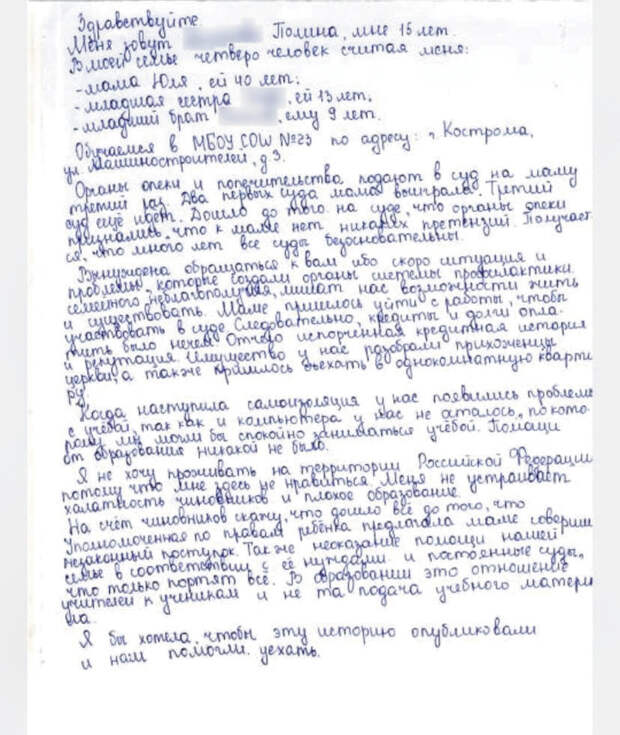 Здравствуйте.
Меня зовут Полина, мне 15 лет.
В моей семье четверо человек считая меня:
-мама Юля, ей 40 лет;
-младшая сестра , ей 13 лет;
-младший брат , ему 9 лет.
Обучаемся в МБОУ СОШ №23 по адресу: г. Кострома,
ул. Машиностроителей, д 3.
Органы опеки и попечительства, подают в суд на маму
третий раз. Два первых суда мама выиграла. Третий
суд ещё идёт. Дошло до того, на суде, что органы опеки
признались, что к маме нет никаких претензий. Получает-
ся, что много лет все суды безосновательны.
Вынуждена обращаться к вам ибо скоро ситуация и
проблемы, которые создали органы системы профилактики
семейного неблагополучия, лишат нас возможности жить
и существовать. Маме пришлось уйти с работы, чтобы
участвовать в суде. Следовательно, кредиты и долги опла-
тить было нечем. Отчего испорченная кредитная история
и репутация. Имущество у нас позабрали прихоженцы
церкви, а также пришлось съехать в однокомнатную кварти
ру.
Когда наступила самоизоляция у нас появились проблемы
с учёбой, так как и компьютера у нас не осталось, по кото-
рому мы могли бы спокойно заниматься учёбой. Помощи
от образования никакой не было.
Я не хочу проживать на территории Российской Федерации
потому что мне здесь не нравиться. Меня не устраивает
халатность чиновников и плохое образование.
На счёт чиновников скажу, что дошло всё до того, что
Уполномоченная по правам ребёнка предлагала маме соверши
незаконный поступок. Так же неоказание помощи нашей
семье в соответствии с её нуждами и постоянные суды,
что только портят всё. В образовании это отношение
учителей к ученикам и не та подача учебного матери
ала.
Я бы хотела, чтобы эту историю опубликовали
и нам помогли уехать.